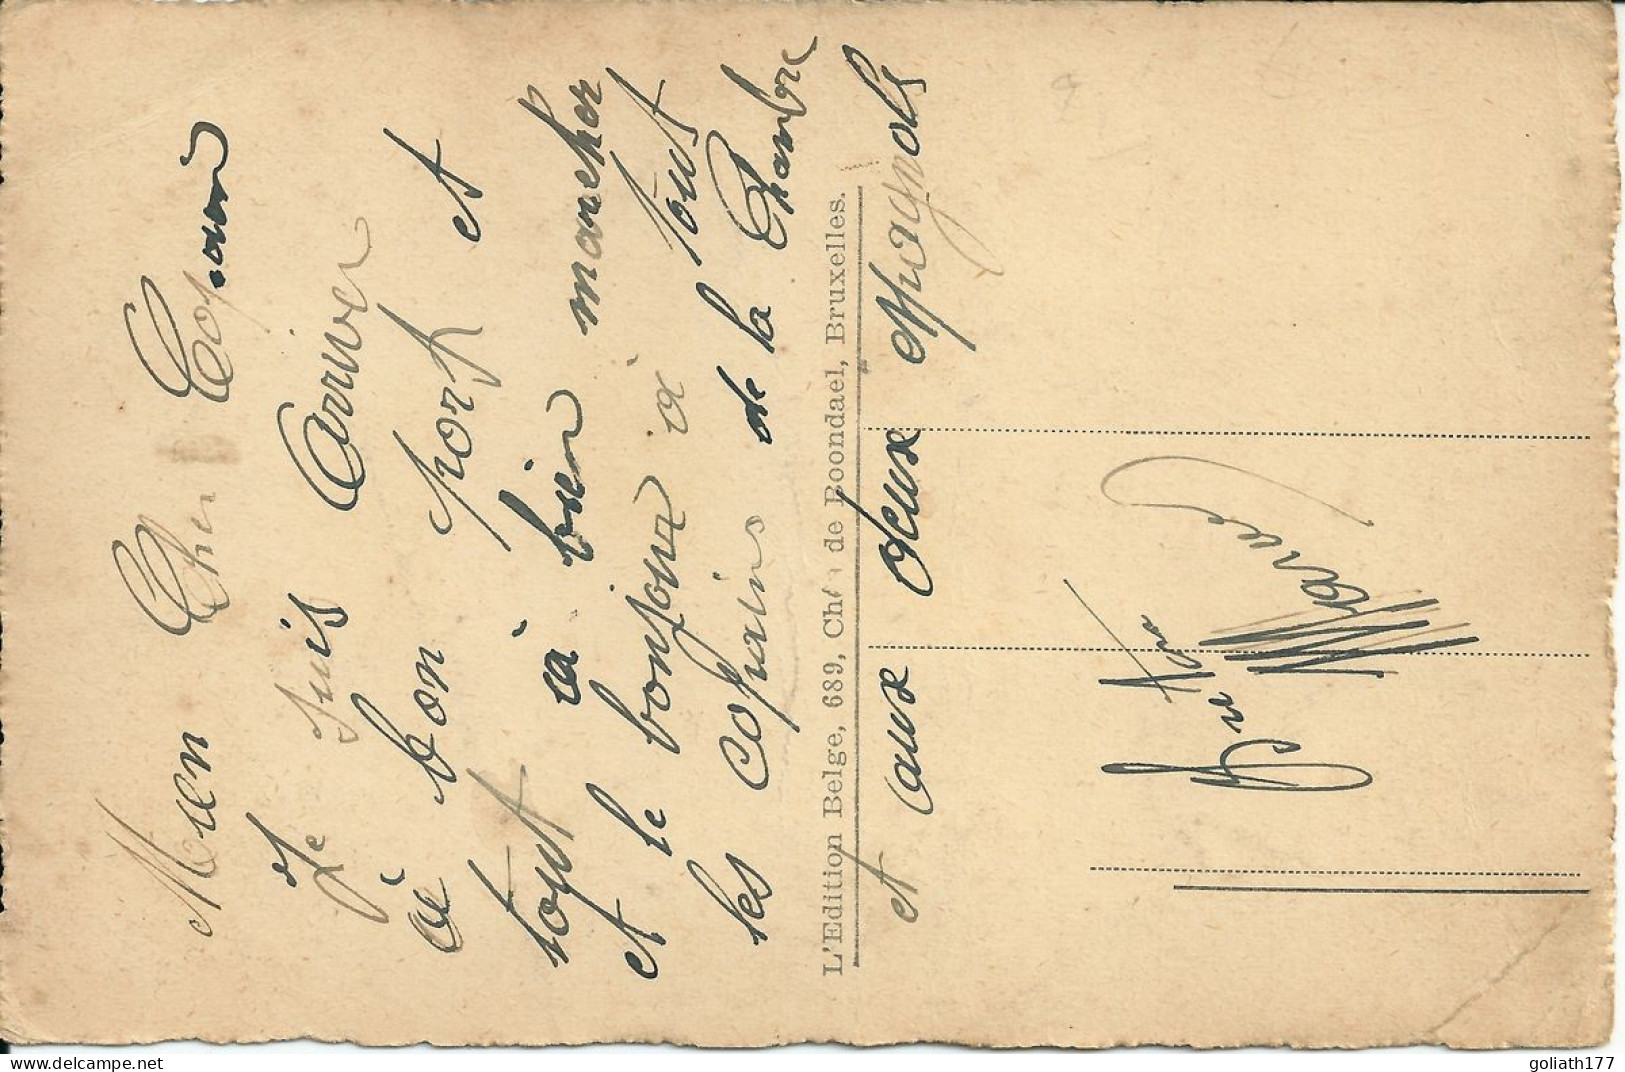 Mien Cher Copain
Je suis Arriver
à bon port et
tout à bien marcher
et le bonjour à tout
les copains de la Chambre
L'Edition Belge, 689, Chée de Boondael, Bruxelles.
et aux deux espagnols
goliath177